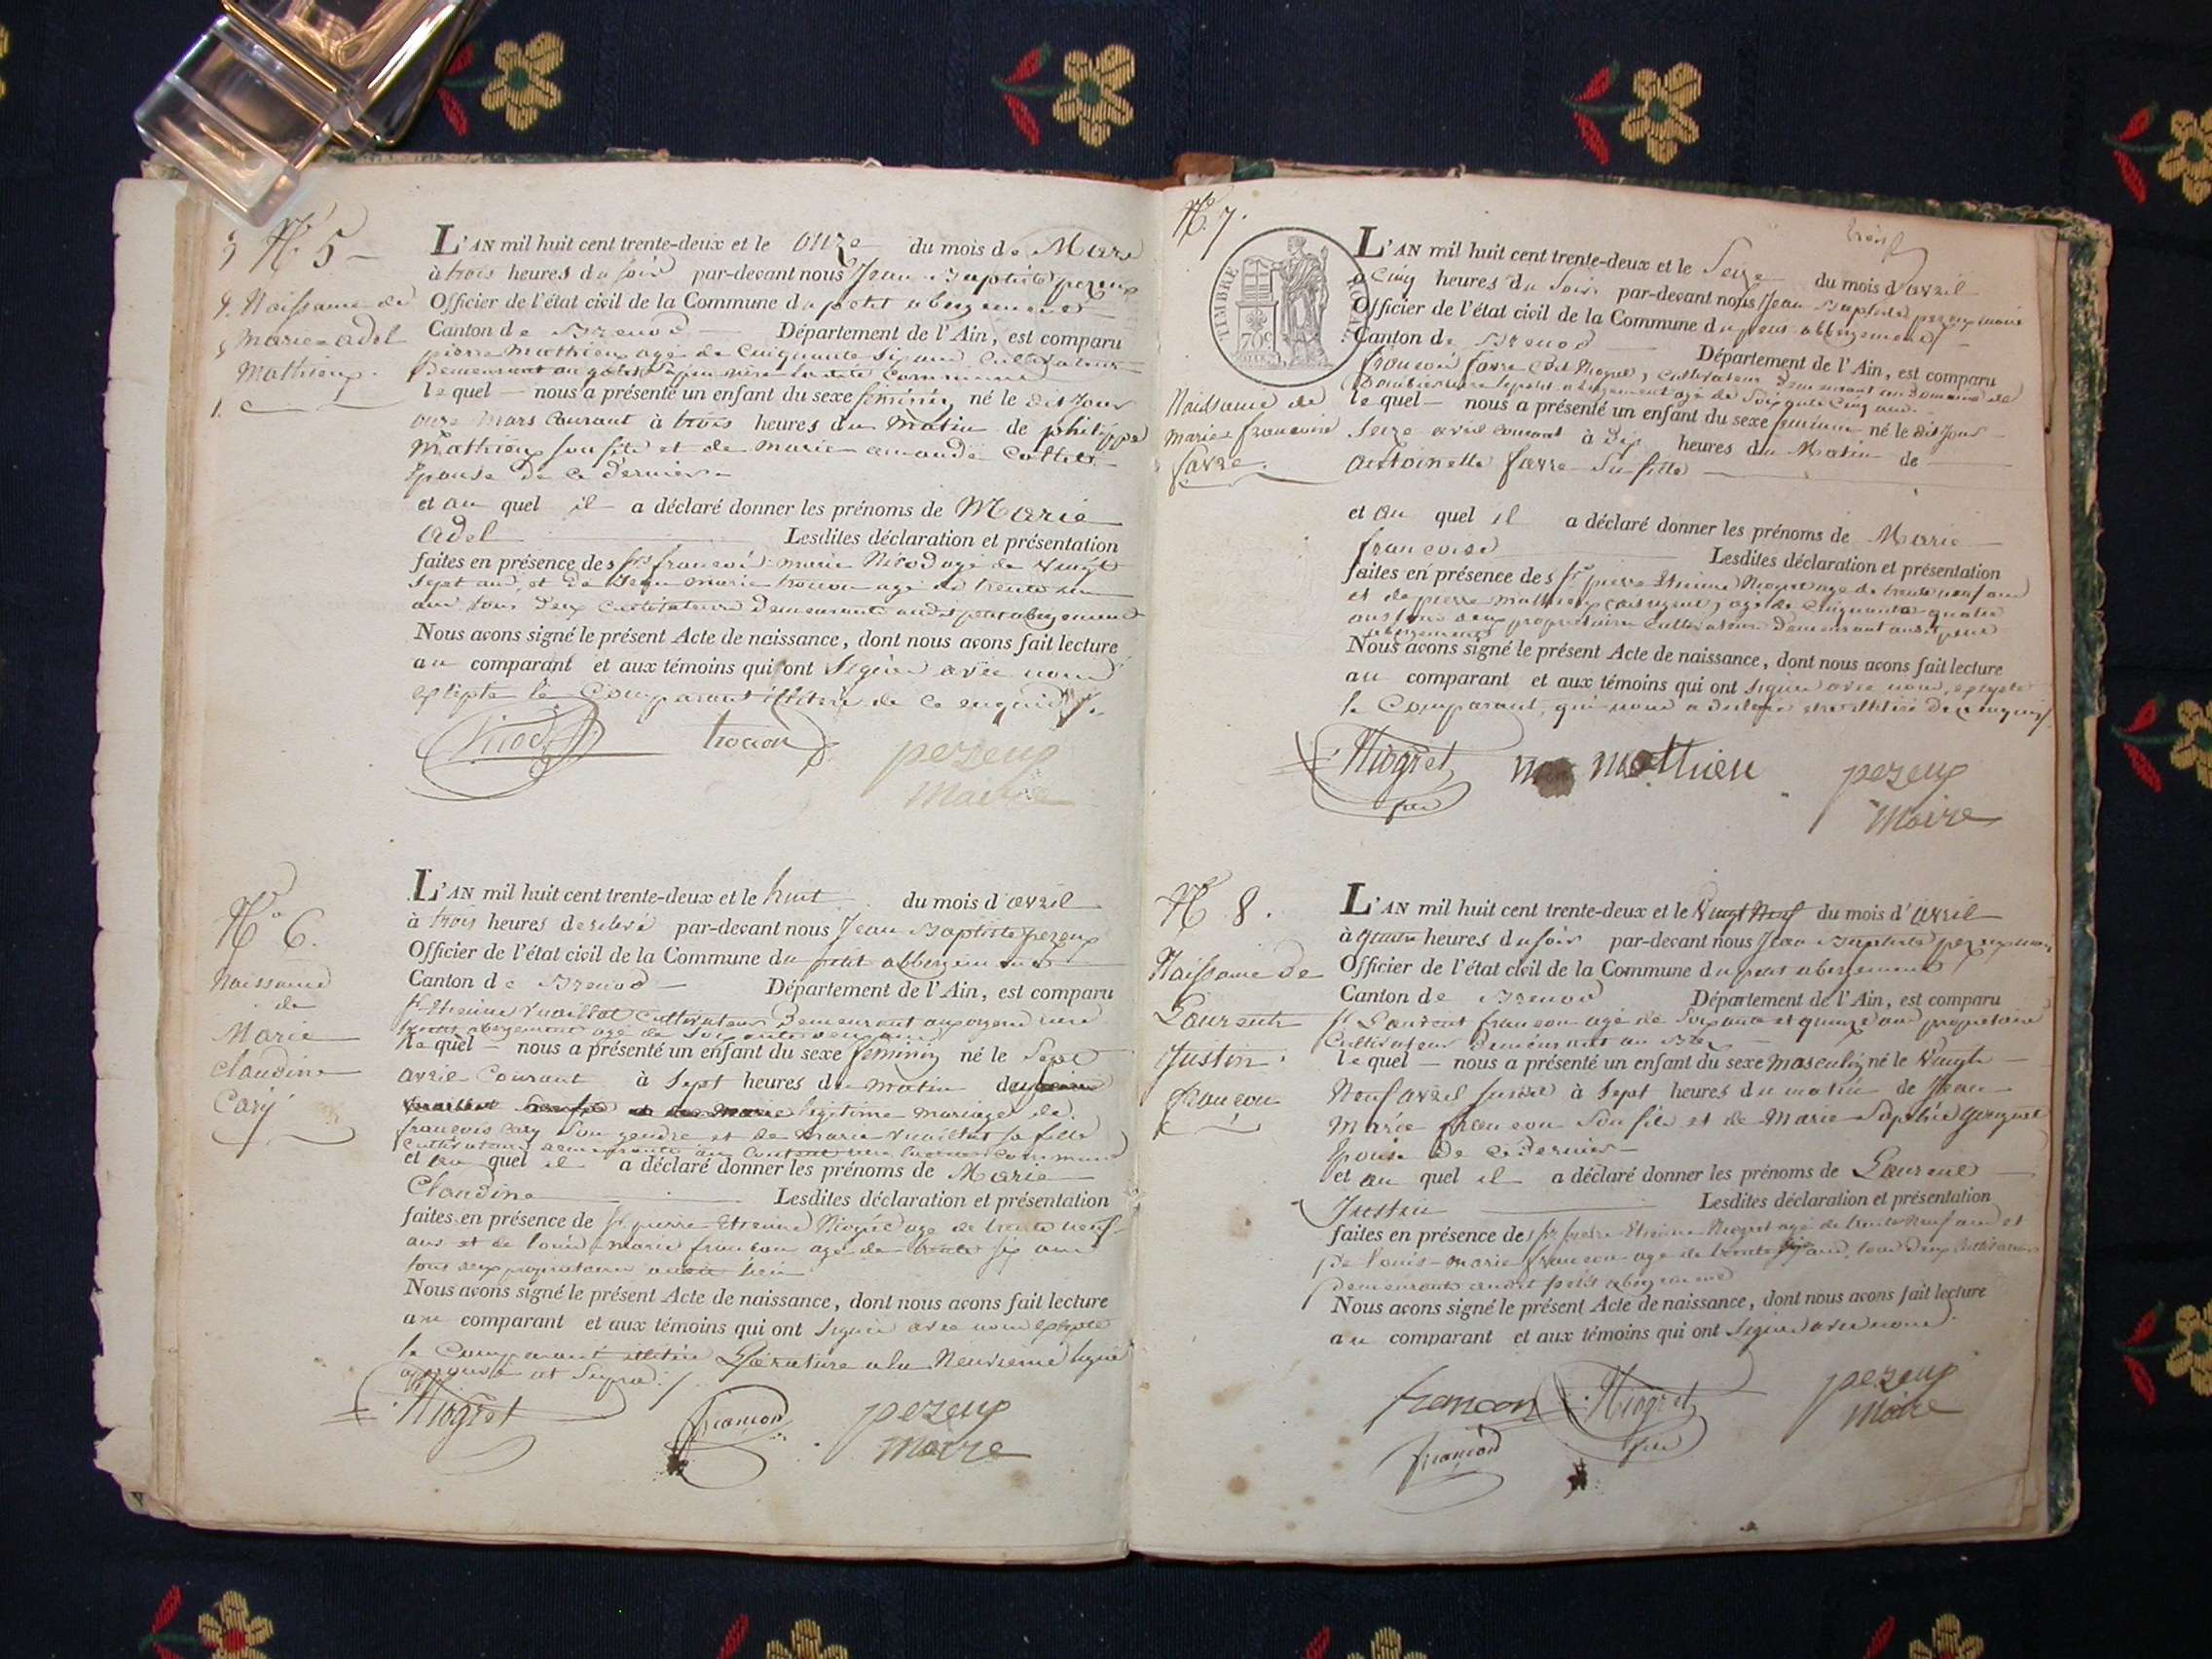 N° 5
Naissance de
marie adel
mathieux.
L'AN mil huit cent trente-deux et le onze du mois de Mars
à trois heures du soir par-devant nous Jean Baptiste pezeux
Officier de l'état civil de la Commune du petit abergement
Canton de Brenod Département de l'Ain, est comparu
pierre Mathieux age de Cinquante six ans Cultivateur
Demeurant au
le quel nous a présenté un enfant du sexe féminin né le dit jour
onze mars Courant à trois heures du Matin de philippe
Mathieux son fils et de marie amandé
Epouse de ce dernier
et au quel il a déclaré donner les prénoms de Marie
adel Lesdites déclaration et présentation
faites en présence des Srs françois marie Nicod agé de vingt
sept ans, et de Jean marie trocon agé de trente un
ans tous deux Cultivateurs demeurants audit petit abergement
Nous avons signé le présent Acte de naissance, dont nous avons fait lecture
au comparant et aux témoins qui ont signés avec nous
exepté le Comparant illitéré de ce enquis
Nicod trocon pezeux
Maire
N° 6.
Naissance
de
Marie
Claudine
Cary
L'AN mil huit cent trente-deux et le huit du mois d'avril
à trois heures de relevé par-devant nous Jean Baptiste pezeux
Officier de l'état civil de la Commune du petit abergement
Canton de Brenod Département de l'Ain, est comparu
Sr Etienne Vuaillat Cultivateur Demeurant
petit abergement agé de soixante
le quel nous a présenté un enfant du sexe feminin né le Sept
avril Courant à Sept heures du matin
legitime mariage de
françois Cary son gendre et de marie Vuaillat sa fille
Cultivateurs demeurants au commune
et au quel il a déclaré donner les prénoms de Marie
Claudine Lesdites déclaration et présentation
faites en présence de Sr pierre Etienne Niogret age de trente neuf
ans et de louis marie françon agé de trente six ans
tous deux propriétaires audit lieu
Nous avons signé le présent Acte de naissance, dont nous avons fait lecture
au comparant et aux témoins qui ont signés avec nous exepté
le Comparant illitéré Rature a la Neuvieme ligne
approuvé ut supra.
Niogret françon pezeux
maire
N° 7.
TIMBRE ROYAL
70c
Naissance de
marie francoise
favre.
L'AN mil huit cent trente-deux et le Seize du mois d'avril
à Cinq heures du Soir par-devant nous Jean Baptiste pezeux maire
Officier de l'état civil de la Commune du petit abbergement
Canton de Brenod Département de l'Ain, est comparu
françois favre Cultivateur demeurant au Domaine de
le petit abergement agé de soixante cinq ans.
le quel nous a présenté un enfant du sexe feminin né le dit jour
Seize avril courant à dix heures du Matin de
Antoinette favre Sa fille
et au quel il a déclaré donner les prénoms de Marie
francoise Lesdites déclaration et présentation
faites en présence des Srs pierre Etienne Niogret age de trente neuf ans
et de pierre mathieux agé de Cinquante quatre
ans tous deux propriétaires cultivateurs demeurant audit petit
abergement
Nous avons signé le présent Acte de naissance, dont nous avons fait lecture
au comparant et aux témoins qui ont signés avec nous, exepté
le Comparant, qui nous a déclaré etre illitéré de ce enquis
Niogret mathieu pezeux
Maire
N° 8.
Naissance de
Laurent
Justin
françon
L'AN mil huit cent trente-deux et le Vingt Neuf du mois d'avril
à quatre heures du soir par-devant nous Jean Baptiste pezeux maire
Officier de l'état civil de la Commune du petit abergement
Canton de Brenod Département de l'Ain, est comparu
Sr Laurent françon agé de Soixante et quinze ans propriétaire
Cultivateur demeurant au
le quel nous a présenté un enfant du sexe masculin né le Vingt
Neuf avril susdit à Sept heures du matin de Jean
Marie françon Son fils et de Marie Sophie
Epouse de ce dernier
et au quel il a déclaré donner les prénoms de Laurent
Justin Lesdites déclaration et présentation
faites en présence des Srs pierre Etienne Niogret agé de trente neuf ans et
de louis-marie françon age de trente six ans, tous deux Cultivateurs
demeurants audit petit abergement
Nous avons signé le présent Acte de naissance, dont nous avons fait lecture
au comparant et aux témoins qui ont signés avec nous.
françon Niogret pezeux
françon maire